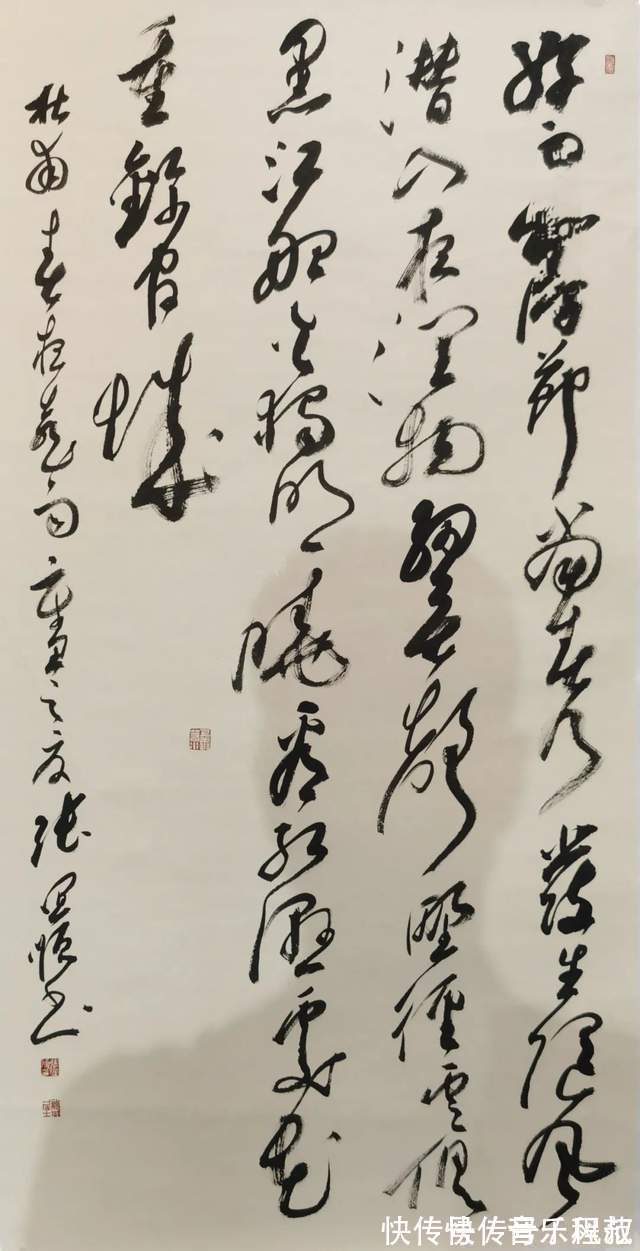 好雨知時節當春乃發生隨風
潛入夜潤物細無聲野徑雲俱
黑江船火獨明曉看紅濕處花
重錦官城
杜甫春夜喜雨 之夏 張 書
快传号